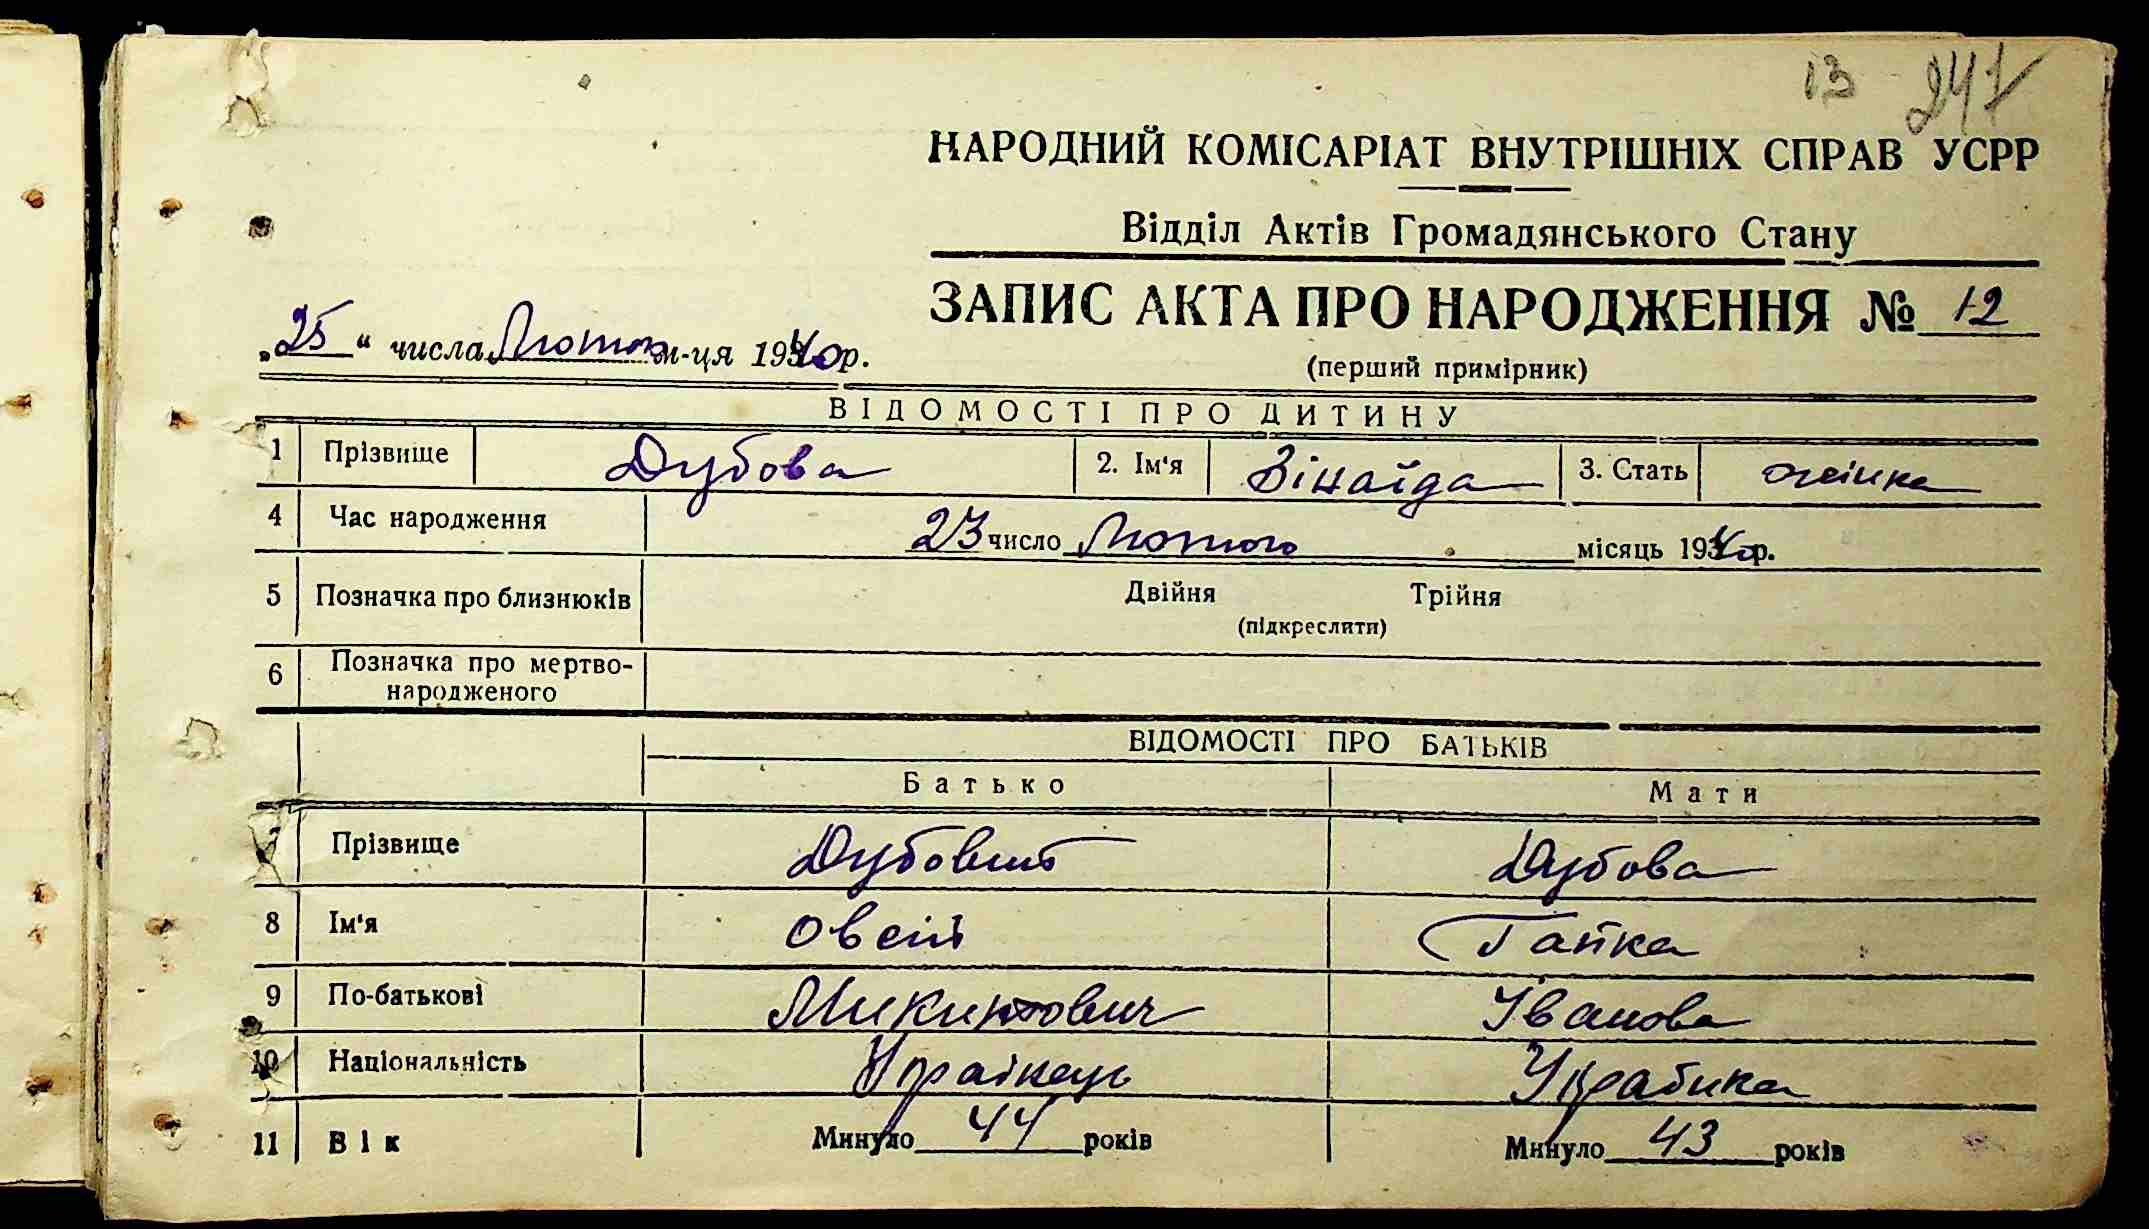 13 247
НАРОДНИЙ КОМІСАРІАТ ВНУТРІШНІХ СПРАВ УСРР
Відділ Актів Громадянського Стану
ЗАПИС АКТА ПРО НАРОДЖЕННЯ № 12
„25“ числа Лютого м-ця 1940р.
(перший примірник)
ВІДОМОСТІ ПРО ДИТИНУ
1 Прізвище Дубова 2. Ім'я Зінаїда 3. Стать жінка
4 Час народження 23 число Лютого місяць 1940р.
5 Позначка про близнюків Двійня Трійня
(підкреслити)
6 Позначка про мертво-
народженого
ВІДОМОСТІ ПРО БАТЬКІВ
Батько Мати
7 Прізвище Дубовий Дубова
8 Ім'я Овсій Гапка
9 По-батькові Микитович Іванова
10 Національність Українець
11 Вік Минуло 44 років Минуло 43 років